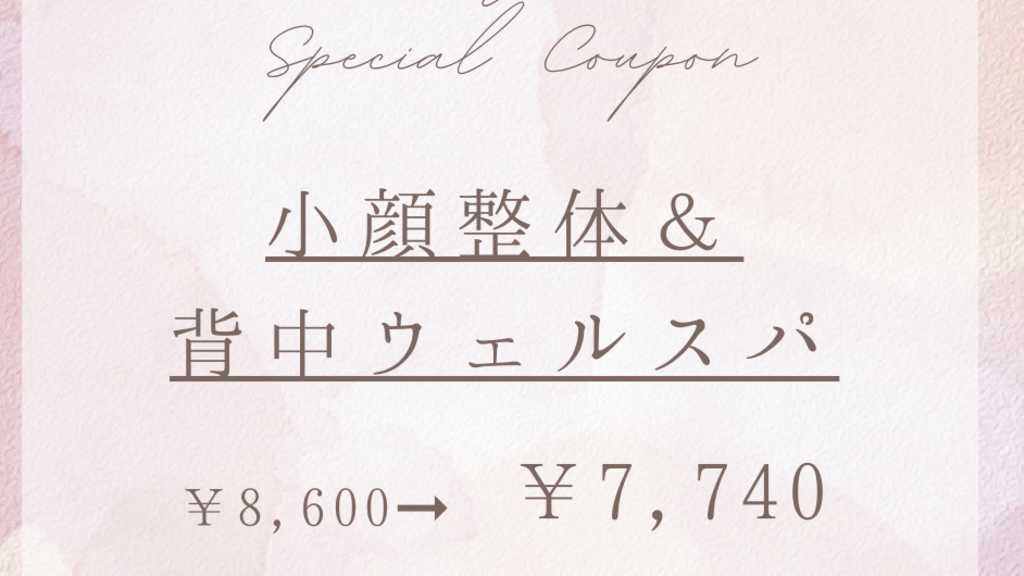 Special Coupon
小顔整体&
背中ウェルスパ
¥8,600→ ¥7,740